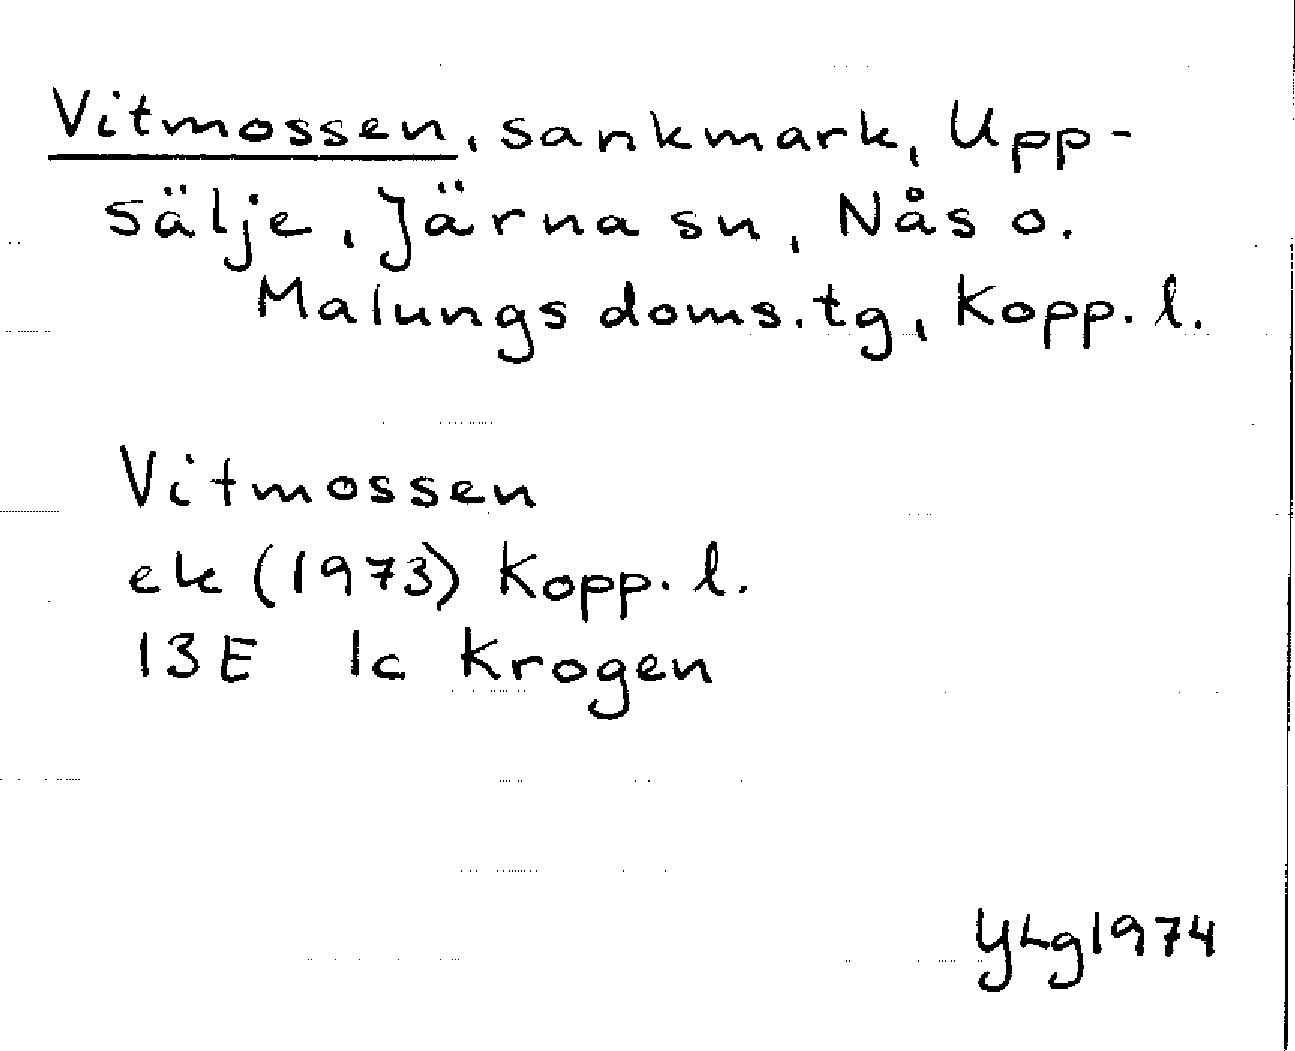 Vitmossen, sankmark, Upp-
sälje, Järna sn, Nås o.
Malungs doms.tg, Kopp. l.
Vitmossen
ek (1973) Kopp. l.
13E 1c Krogen
YLg 1974